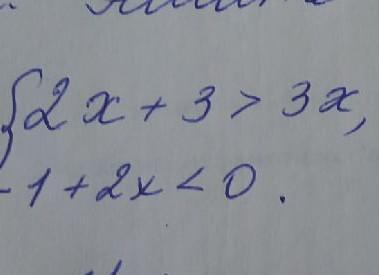 {2x + 3 > 3x,
-1 + 2x < 0.